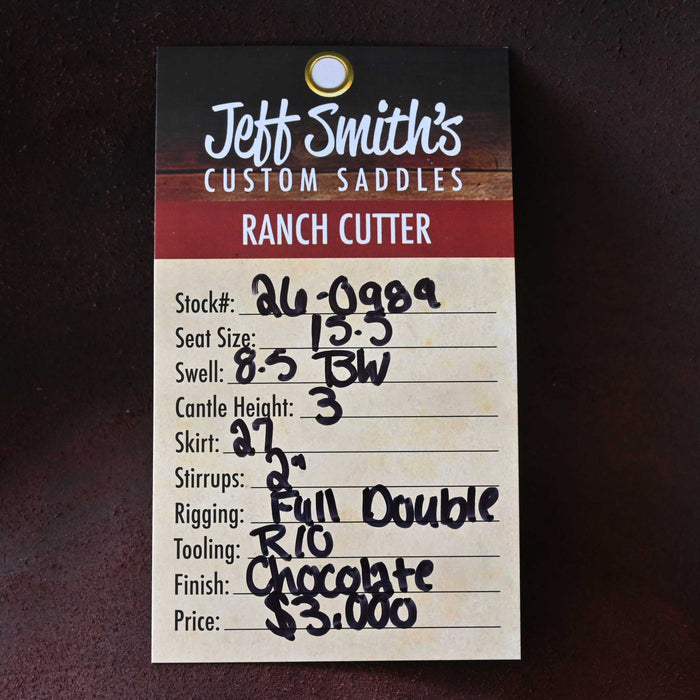 Jeff Smith's
CUSTOM SADDLES
RANCH CUTTER
Stock#: 26-0989
Seat Size: 15.5
Swell: 8.5 BW
Cantle Height: 3
Skirt: 27
Stirrups: 2"
Rigging: Full Double
Tooling: R10
Finish: Chocolate
Price: $3.000